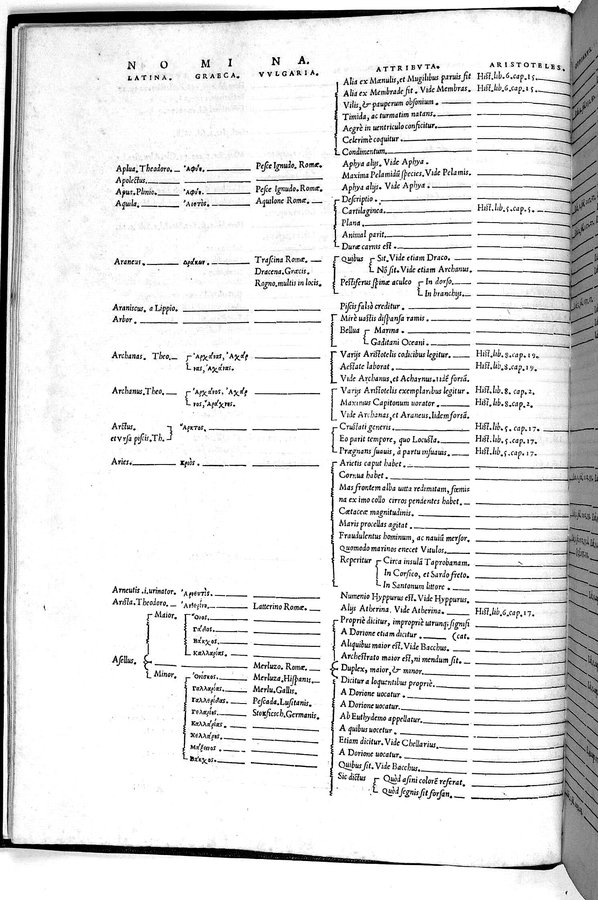 NOMINA.
LATINA. GRAECA. VVLGARIA. ATTRIBVTA. ARISTOTELES.
Alia ex Mænulis, et Mugilibus paruis fit Hist. lib. 6. cap. 15.
Alia ex Membrade fit. Vide Membras. Hist. lib. 6. cap. 15.
Vilis, & pauperum obsonium.
Timida, ac turmatim natans.
Aegrè in uentriculo conficitur.
Celerimè coquitur.
Condimentum.
Aplua. Theodoro. Ἀφύη. Pesce Ignudo. Romæ. Aphya alijs. Vide Aphya.
Apolectus. Maxima Pelamidũ species. Vide Pelamis.
Apus. Plinio. Ἀφύη. Pesce Ignudo. Romæ. Aphya alijs. Vide Aphya.
Aquila. Ἀετὸς. Aquilone Romæ. Descriptio.
Cartilaginea. Hist. lib. 5. cap. 5.
Plana
Animal parit.
Duræ carnis est.
Araneus. Δράκων. Trascina Romæ. Quibus Sit. Vide etiam Draco.
Dracena. Græcis. Nõ sit. Vide etiam Archanus.
Ragno. multis in locis. Pestiferus spinæ aculeo In dorso.
In branchijs.
Araniscus. a Lippio. Piscis falsò creditur.
Arbor. Mirè uastis dispansa ramis.
Bellua Marina.
Gaditani Oceani.
Archanas. Theo. Varijs Aristotelis codicibus legitur. Hist. lib. 8. cap. 19.
Aestate laborat. Hist. lib. 8. cap. 19.
Vide Archanus, et Acharnus. iidẽ forsã.
Archanus. Theo. Varijs Aristotelis exemplaribus legitur. Hist. lib. 8. cap. 2.
Maximus Capitonum uorator. Hist. lib. 8. cap. 2.
Vide Archanas, et Araneus. Iidem forsã.
Arctus. Ἄρκτος. Crustati generis. Hist. lib. 5. cap. 17.
et Vrsa piscis. Th. Eo parit tempore, quo Locusta. Hist. lib. 5. cap. 17.
Prægnans suauis, à partu insuauis. Hist. lib. 5. cap. 17.
Aries. Κριὸς. Arietis caput habet.
Cornua habet.
Mas frontem alba uitta redimitam, fœmi=
na ex imo collo cirros pendentes habet.
Cætaceæ magnitudinis.
Maris procellas agitat.
Fraudulentus hominum, ac nauiũ mersor.
Quomodo marinos enecet Vitulos.
Reperitur Circa insulã Taprobanam.
In Corsico, et Sardo freto.
In Santonum littore.
Arneutis .i. urinator. Numenio Hyppurus est. Vide Hyppurus.
Arista. Theodoro. Latterino Romæ. Alijs Atherina. Vide Atherina. Hist. lib. 6. cap. 17.
Asellus. Maior. Ὄνος. Propriè dicitur, impropriè utrunq; signifi
Γάδος. A Dorione etiam dicitur. (cat.
Βάκχος. Aliquibus maior est. Vide Bacchus.
Καλλαρίας. Archestrato maior est, ni mendum sit.
Merluzo. Romæ. Duplex, maior, & minor.
Minor. Ὀνίσκος. Merluza. Hispanis. Dicitur a loquentibus propriè.
Γαλλαρίας. Merlu. Gallis. A Dorione uocatur.
Pescada. Lusitanis. A Dorione uocatur.
Γαλαρίας. Stokfiesch. Germanis. Ab Euthydemo appellatur.
Καλλαρίας. A quibus uocetur.
Χελλαρὴς. Etiam dicitur. Vide Chellarius.
A Dorione uocatur.
Βάκχος. Quibus sit. Vide Bacchus.
Sic dictus Quòd asini colorẽ referat.
Quòd segnis sit forsan.